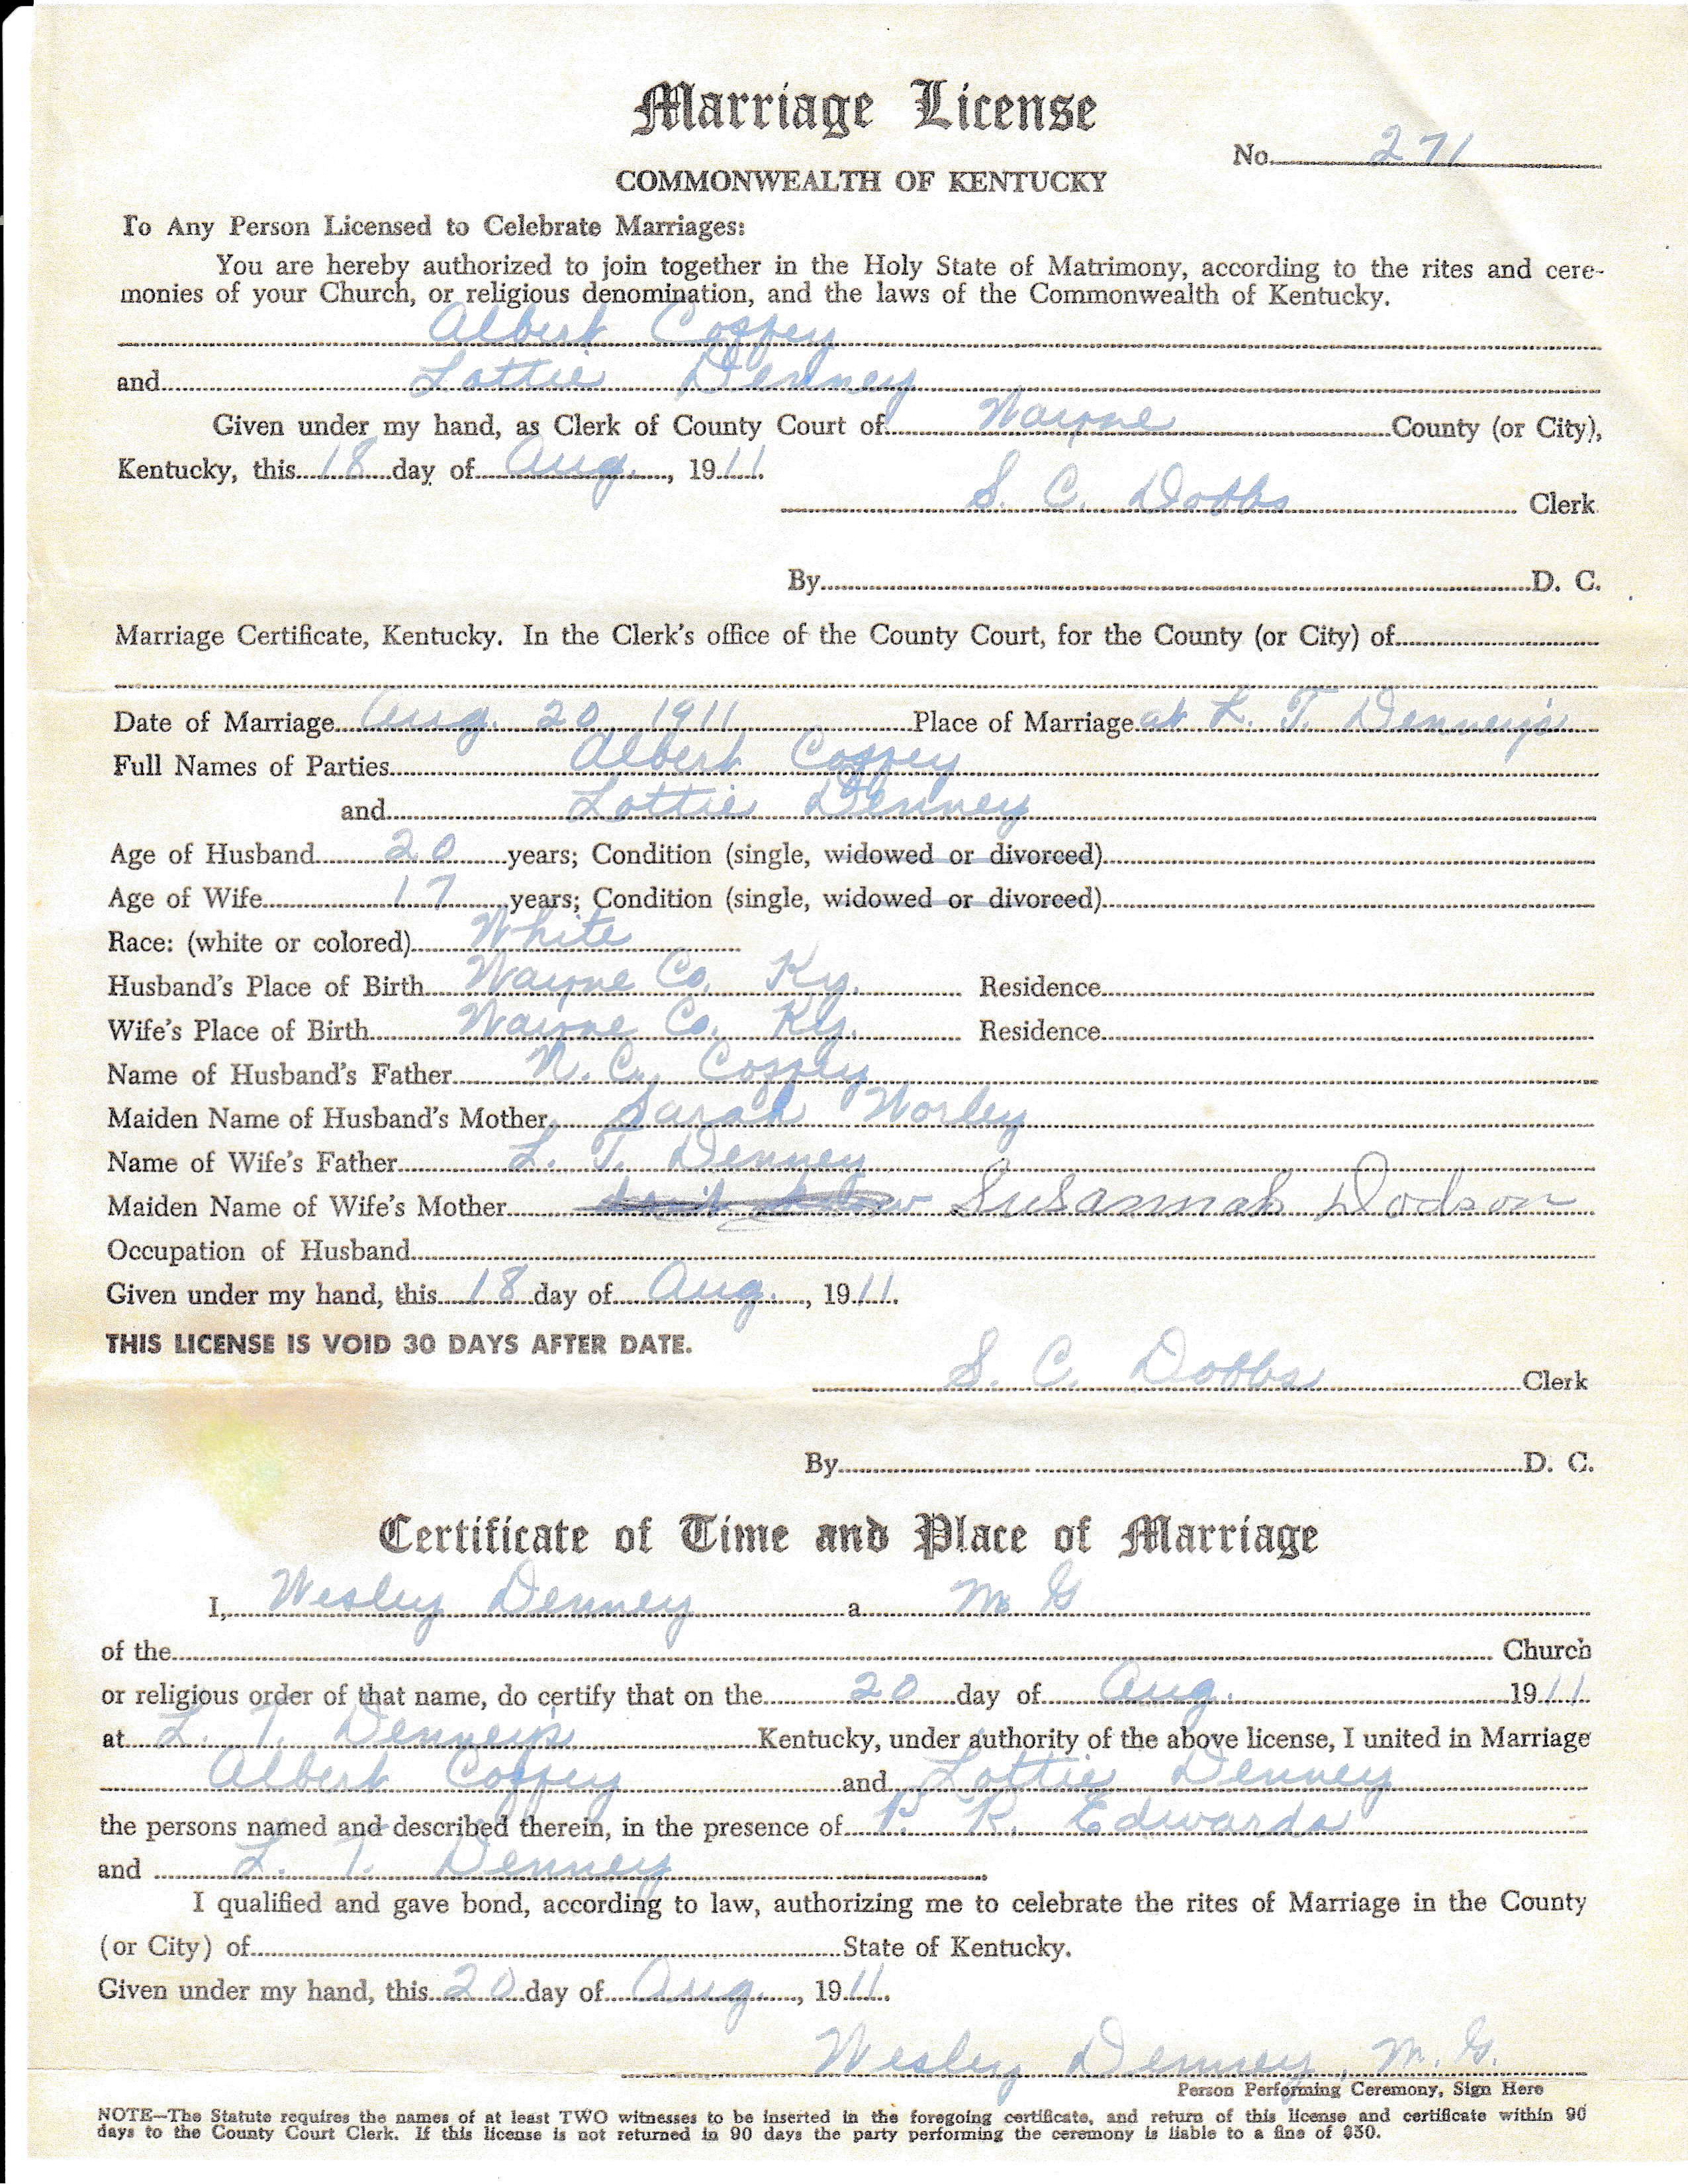 Marriage License
No. 271
COMMONWEALTH OF KENTUCKY
To Any Person Licensed to Celebrate Marriages:
You are hereby authorized to join together in the Holy State of Matrimony, according to the rites and cere-
monies of your Church, or religious denomination, and the laws of the Commonwealth of Kentucky.
Albert Coffey
and Lottie Denney
Given under my hand, as Clerk of County Court of Wayne County (or City),
Kentucky, this 18 day of Aug., 1911.
S. C. Dobbs Clerk
By D. C.
Marriage Certificate, Kentucky. In the Clerk's office of the County Court, for the County (or City) of
Date of Marriage Aug. 20 1911 Place of Marriage at L. T. Denney's
Full Names of Parties Albert Coffey
and Lottie Denney
Age of Husband 20 years; Condition (single, widowed or divorced)
Age of Wife 17 years; Condition (single, widowed or divorced)
Race: (white or colored) White
Husband's Place of Birth Wayne Co. Ky. Residence
Wife's Place of Birth Wayne Co. Ky. Residence
Name of Husband's Father N. C. Coffey
Maiden Name of Husband's Mother Sarah Worley
Name of Wife's Father L. T. Denney
Maiden Name of Wife's Mother Susannah Dodson
Occupation of Husband
Given under my hand, this 18 day of Aug., 1911.
THIS LICENSE IS VOID 30 DAYS AFTER DATE.
S. C. Dobbs Clerk
By D. C.
Certificate of Time and Place of Marriage
I, Wesley Denney a M G
of the Church
or religious order of that name, do certify that on the 20 day of Aug. 1911
at L. T. Denney's Kentucky, under authority of the above license, I united in Marriage
Albert Coffey and Lottie Denney
the persons named and described therein, in the presence of P. R. Edwards
and L. T. Denney
I qualified and gave bond, according to law, authorizing me to celebrate the rites of Marriage in the County
(or City) of State of Kentucky.
Given under my hand, this 20 day of Aug., 1911.
Wesley Denney, M. G.
Person Performing Ceremony, Sign Here
NOTE—The Statute requires the names of at least TWO witnesses to be inserted in the foregoing certificate, and return of this license and certificate within 90
days to the County Court Clerk. If this license is not returned in 90 days the party performing the ceremony is liable to a fine of $50.